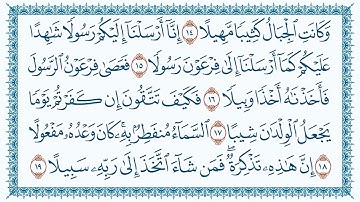 وَكَانَتِ ٱلْجِبَالُ كَثِيبًا مَّهِيلًا ١٤ إِنَّآ أَرْسَلْنَآ إِلَيْكُمْ رَسُولًا شَٰهِدًا
عَلَيْكُمْ كَمَآ أَرْسَلْنَآ إِلَىٰ فِرْعَوْنَ رَسُولًا ١٥ فَعَصَىٰ فِرْعَوْنُ ٱلرَّسُولَ
فَأَخَذْنَٰهُ أَخْذًا وَبِيلًا ١٦ فَكَيْفَ تَتَّقُونَ إِن كَفَرْتُمْ يَوْمًا
يَجْعَلُ ٱلْوِلْدَٰنَ شِيبًا ١٧ ٱلسَّمَآءُ مُنفَطِرٌۢ بِهِۦ ۚ كَانَ وَعْدُهُۥ مَفْعُولًا
١٨ إِنَّ هَٰذِهِۦ تَذْكِرَةٌ ۖ فَمَن شَآءَ ٱتَّخَذَ إِلَىٰ رَبِّهِۦ سَبِيلًا ١٩